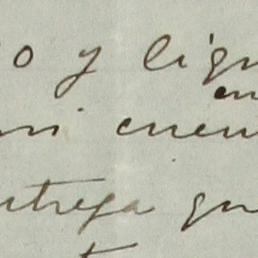 o y lign
en
mi cuen
ntrega qu